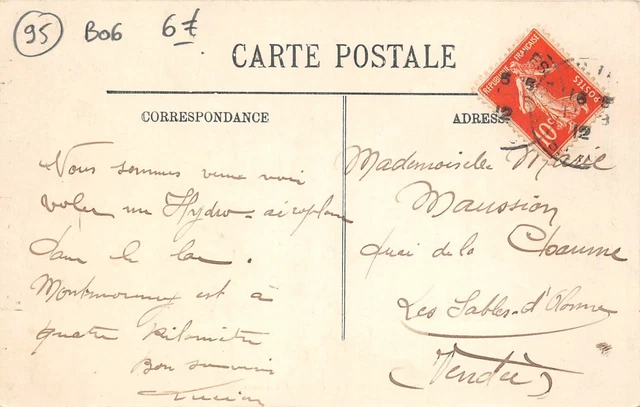 95 B06 6€
CARTE POSTALE
CORRESPONDANCE
ADRESSE
RÉPUBLIQUE FRANÇAISE
POSTES
10c
12
12
Nous sommes venus voir
voler un Hydro-aéroplane
dans le lac.
Montmorency est à
quatre kilomètres
Bon souvenir
Lucien
Mademoiselle Marie
Maussion
Quai de la Chaume
Les Sables-d'Olonne
(Vendée)